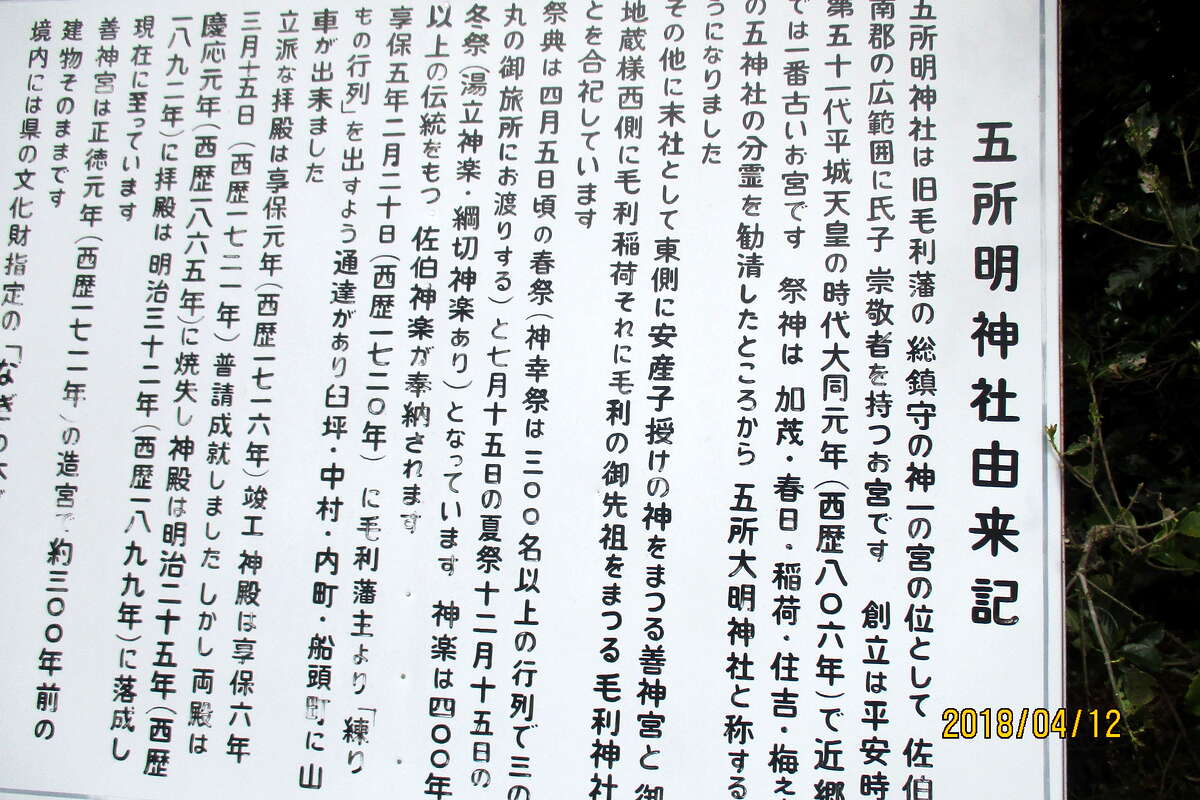 五所明神社由来記
五所明神社は旧毛利藩の総鎮守の神一の宮の位として 佐伯
南郡の広範囲に氏子 崇敬者を持つお宮です 創立は平安時
第五十一代平城天皇の時代大同元年(西歴八〇六年)で近郷
では一番古いお宮です 祭神は 加茂・春日・稲荷・住吉・梅え
の五神社の分霊を勧清したところから 五所大明神社と称する
うになりました
その他に末社として東側に安産子授けの神をまつる善神宮と 御
地蔵様西側に毛利稲荷それに毛利の御先祖をまつる毛利神社
とを合祀しています
祭典は四月五日頃の春祭(神幸祭は三〇〇名以上の行列で三の
丸の御旅所にお渡りする)と七月十五日の夏祭十二月十五日の
冬祭(湯立神楽・綱切神楽あり)となっています 神楽は四〇〇年
以上の伝統をもつ 佐伯神楽が奉納されます
享保五年二月二十日(西歴一七二〇年)に毛利藩主より「練り
もの行列」を出すよう通達があり臼坪・中村・内町・船頭町に山
車が出来ました
立派な拝殿は享保元年(西歴一七一六年)竣工 神殿は享保六年
三月十五日(西歴一七二一年)普請成就しました しかし 両殿は
慶応元年(西歴一八六五年)に焼失し 神殿は明治二十五年(西歴
一八九二年)に拝殿は 明治三十二年(西歴一八九九年)に落成し
現在に至っています
善神宮は正徳元年(西歴一七一一年)の造宮で 約三〇〇年前の
建物そのままです
境内には県の文化財指定の「なぎの木
2018/04/12